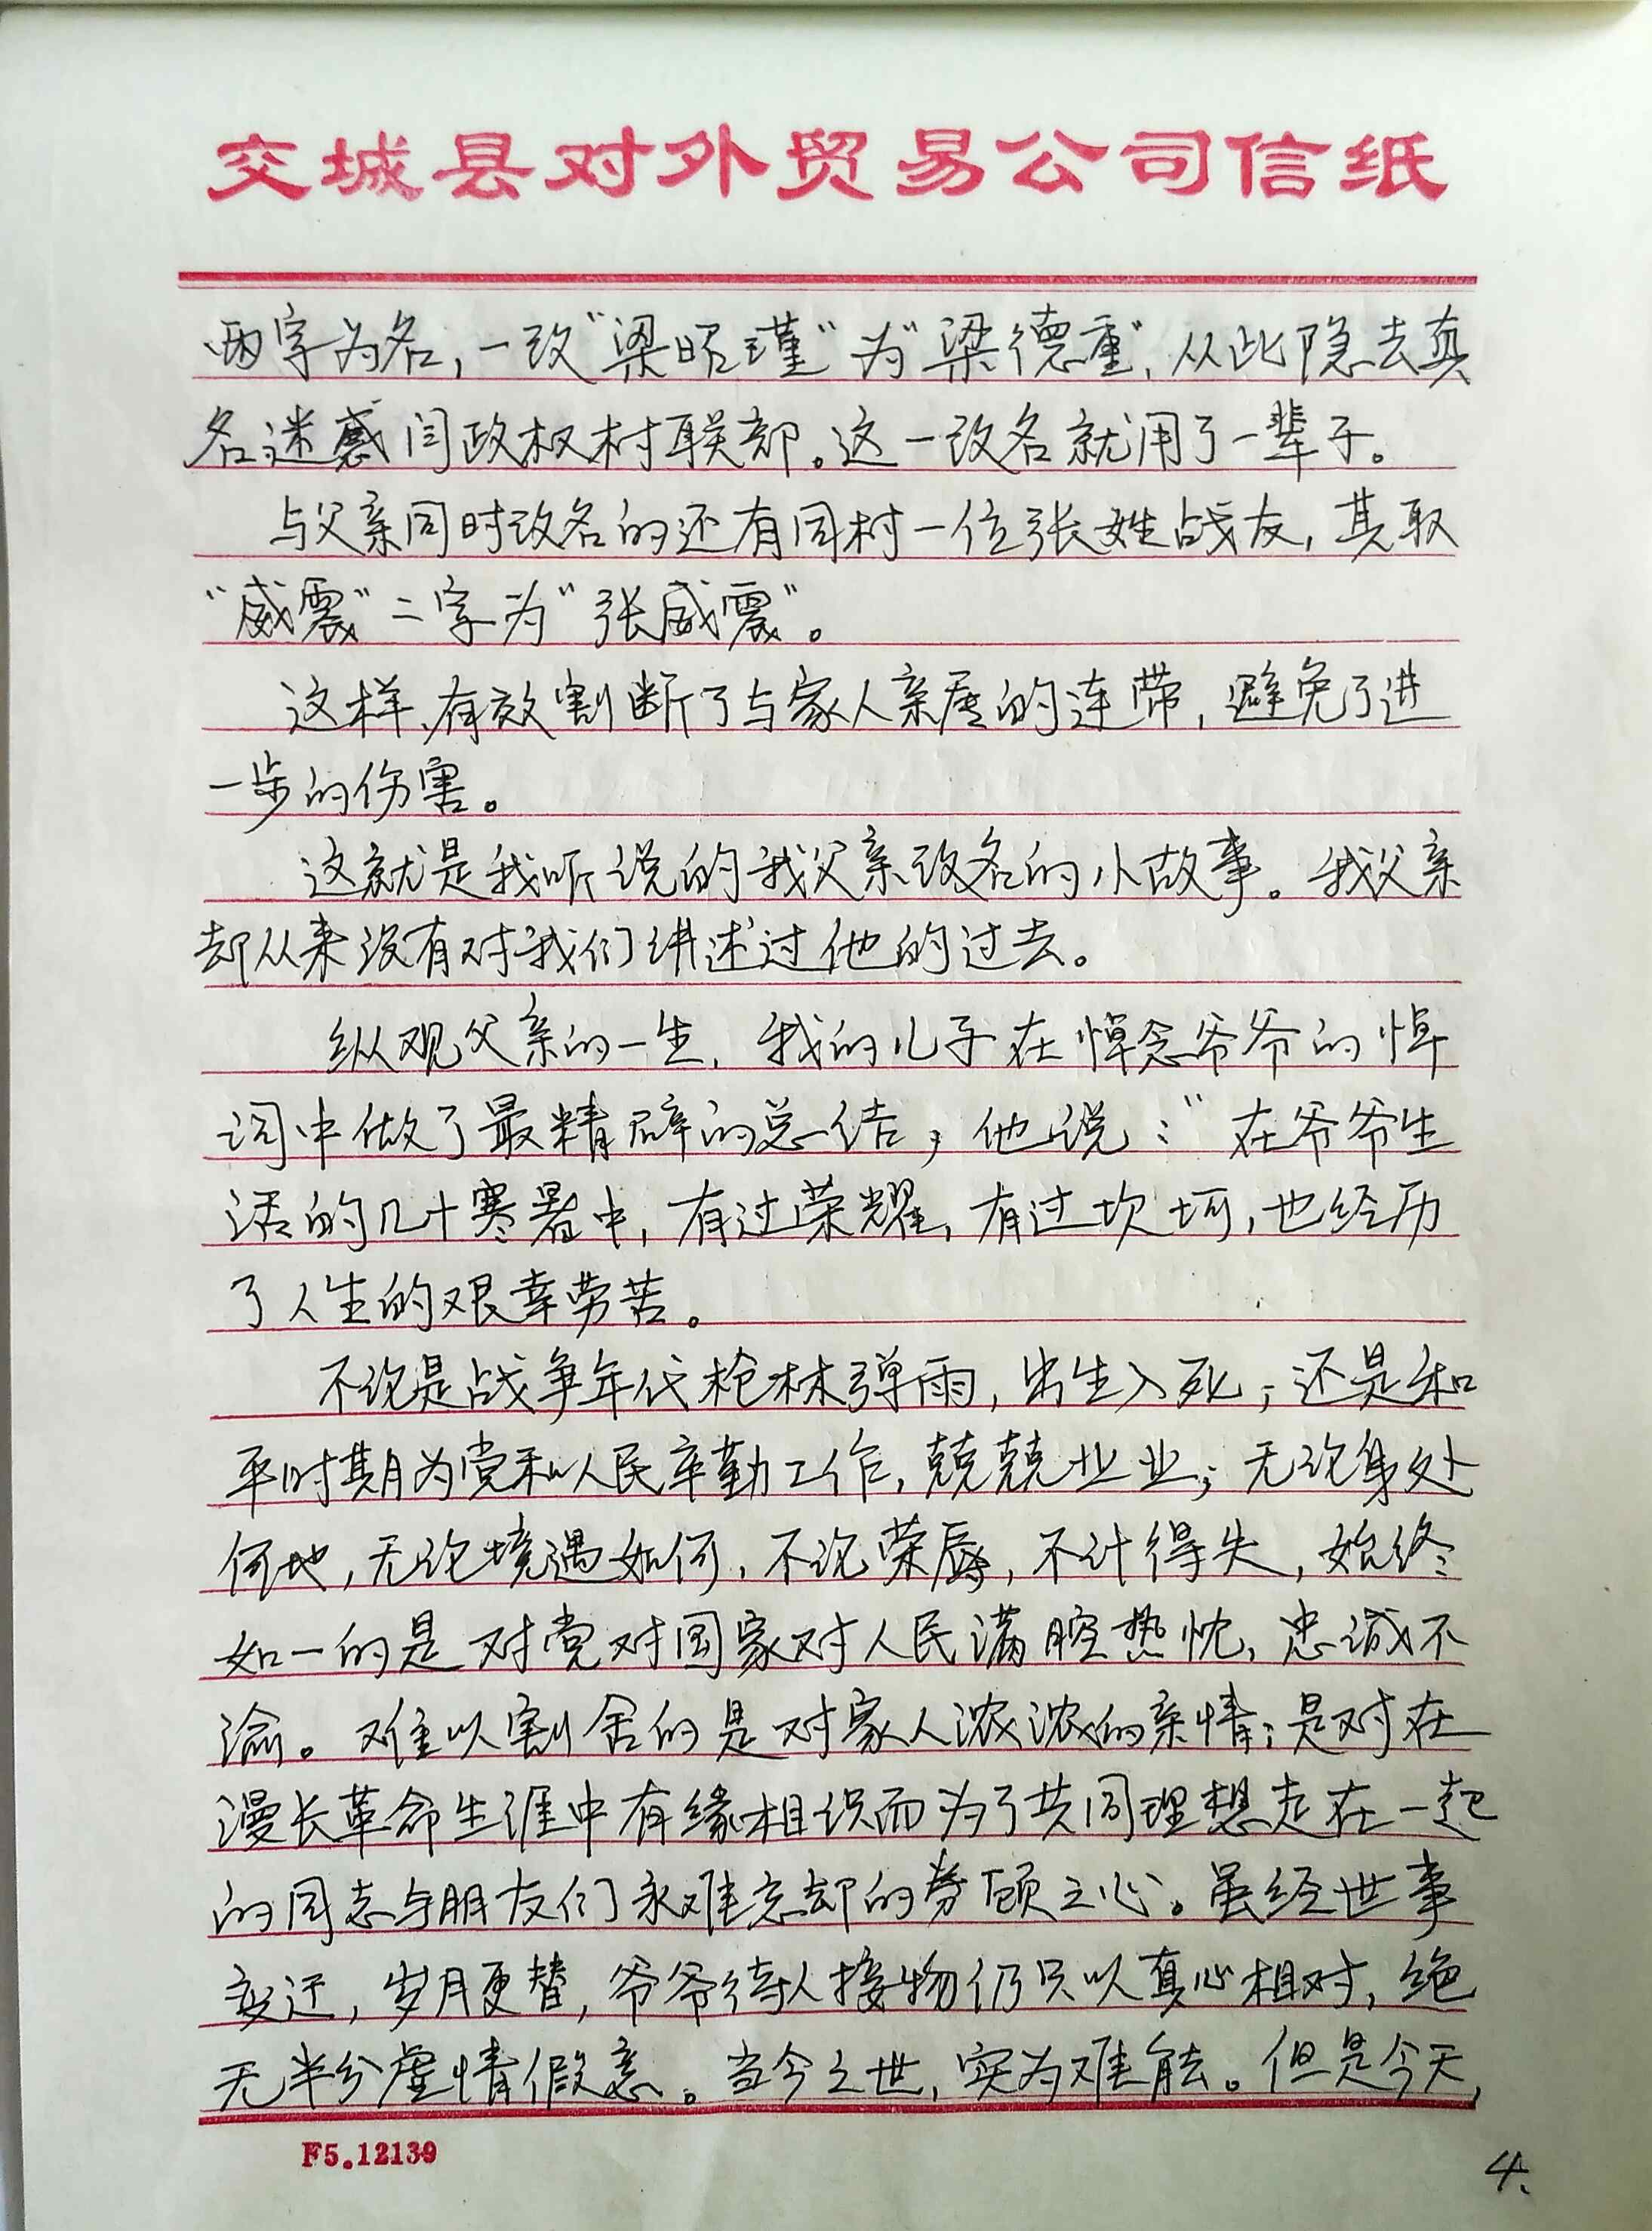 交城县对外贸易公司信纸
两字为名，一改“梁昭瑾”为“梁德重”，从此隐去真
名迷惑闫政权村联部。这一改名就用了一辈子。
与父亲同时改名的还有同村一位张姓战友，其取
“威震”二字为“张威震”。
这样，有效割断了与家人亲属的连带，避免了进
一步的伤害。
这就是我听说的我父亲改名的小故事。我父亲
却从来没有对我们讲述过他的过去。
纵观父亲的一生，我的儿子在悼念爷爷的悼
词中做了最精辟的总结，他说：“在爷爷生
活的几十寒暑中，有过荣耀，有过坎坷，也经历
了人生的艰幸劳苦。
不论是战争年代枪林弹雨，出生入死；还是和
平时期为党和人民辛勤工作，兢兢业业；无论身处
何地，无论境遇如何，不论荣辱，不计得失，始终
如一的是对党对国家对人民满腔热忱，忠诚不
渝。难以割舍的是对家人浓浓的亲情；是对在
漫长革命生涯中有缘相识而为了共同理想走在一起
的同志与朋友们永难忘却的眷顾之心。虽经世事
变迁，岁月更替，爷爷待人接物仍只以真心相对，绝
无半分虚情假意。当今之世，实为难能。但是今天，
F5.12139
4、